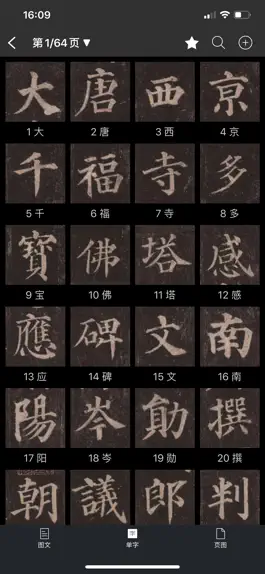 16:09
第1/64页▼
大 唐 西 京
1 大 2 唐 3 西 4 京
千 福 寺 多
5 千 6 福 7 寺 8 多
寶 佛 塔 感
9 宝 10 佛 11 塔 12 感
應 碑 文 南
13 应 14 碑 15 文 16 南
陽 岑 勛 撰
17 阳 18 岑 19 勋 20 撰
朝 議 郎 判
图文 单字 页图